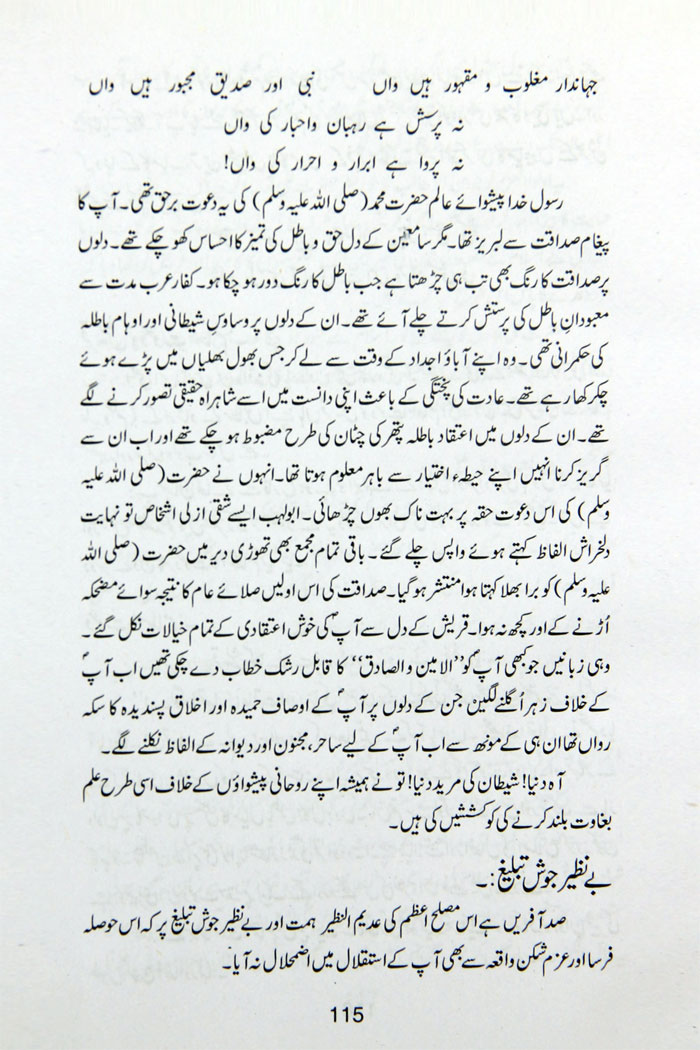 جہاندار مغلوب و مقہور ہیں واں نبی اور صدیق مجبور ہیں واں
نہ پرسش ہے رہبان واحبار کی واں
نہ پروا ہے ابرار و احرار کی واں!
رسول خدا پیشوائے عالم حضرت محمد (صلی اللہ علیہ وسلم) کی یہ دعوت برحق تھی۔ آپ کا
پیغام صداقت سے لبریز تھا۔ مگر سامعین کے دل حق و باطل کی تمیز کا احساس کھو چکے تھے۔ دلوں
پر صداقت کا رنگ بھی تب ہی چڑھتا ہے جب باطل کا رنگ دور ہو چکا ہو۔ کفار عرب مدت سے
معبودانِ باطل کی پرستش کرتے چلے آئے تھے۔ ان کے دلوں پر وساوسِ شیطانی اور اوہام باطلہ
کی حکمرانی تھی۔ وہ اپنے آباؤ اجداد کے وقت سے لے کر جس بھول بھلیاں میں پڑے ہوئے
چکر کھا رہے تھے۔ عادت کی پختگی کے باعث اپنی دانست میں اسے شاہراہ حقیقی تصور کرنے لگے
تھے۔ ان کے دلوں میں اعتقاد باطلہ پتھر کی چٹان کی طرح مضبوط ہو چکے تھے اور اب ان سے
گریز کرنا انہیں اپنے حیطۂ اختیار سے باہر معلوم ہوتا تھا۔ انہوں نے حضرت (صلی اللہ علیہ
وسلم) کی اس دعوت حقہ پر بہت ناک بھوں چڑھائی۔ ابولہب ایسے شقی ازلی اشخاص تو نہایت
دلخراش الفاظ کہتے ہوئے واپس چلے گئے۔ باقی تمام مجمع بھی تھوڑی دیر میں حضرت (صلی اللہ
علیہ وسلم) کو برا بھلا کہتا ہوا منتشر ہو گیا۔ صداقت کی اس اولیں صلائے عام کا نتیجہ سوائے مضحکہ
اُڑنے کے اور کچھ نہ ہوا۔ قریش کے دل سے آپؐ کی خوش اعتقادی کے تمام خیالات نکل گئے۔
وہی زبانیں جو کبھی آپؐ کو ’’الامین و الصادق‘‘ کا قابل رشک خطاب دے چکی تھیں اب آپؐ
کے خلاف زہر اُگلنے لگیں جن کے دلوں پر آپؐ کے اوصاف حمیدہ اور اخلاق پسندیدہ کا سکہ
رواں تھا ان ہی کے مونھ سے اب آپؐ کے لیے ساحر، مجنون اور دیوانہ کے الفاظ نکلنے لگے۔
آہ دنیا! شیطان کی مرید دنیا! تو نے ہمیشہ اپنے روحانی پیشواؤں کے خلاف اسی طرح علم
بغاوت بلند کرنے کی کوششیں کی ہیں۔
بے نظیر جوش تبلیغ:۔
صد آفریں ہے اس مصلح اعظم کی عدیم النظیر ہمت اور بے نظیر جوش تبلیغ پر کہ اس حوصلہ
فرسا اور عزم شکن واقعہ سے بھی آپ کے استقلال میں اضمحلال نہ آیا۔
115